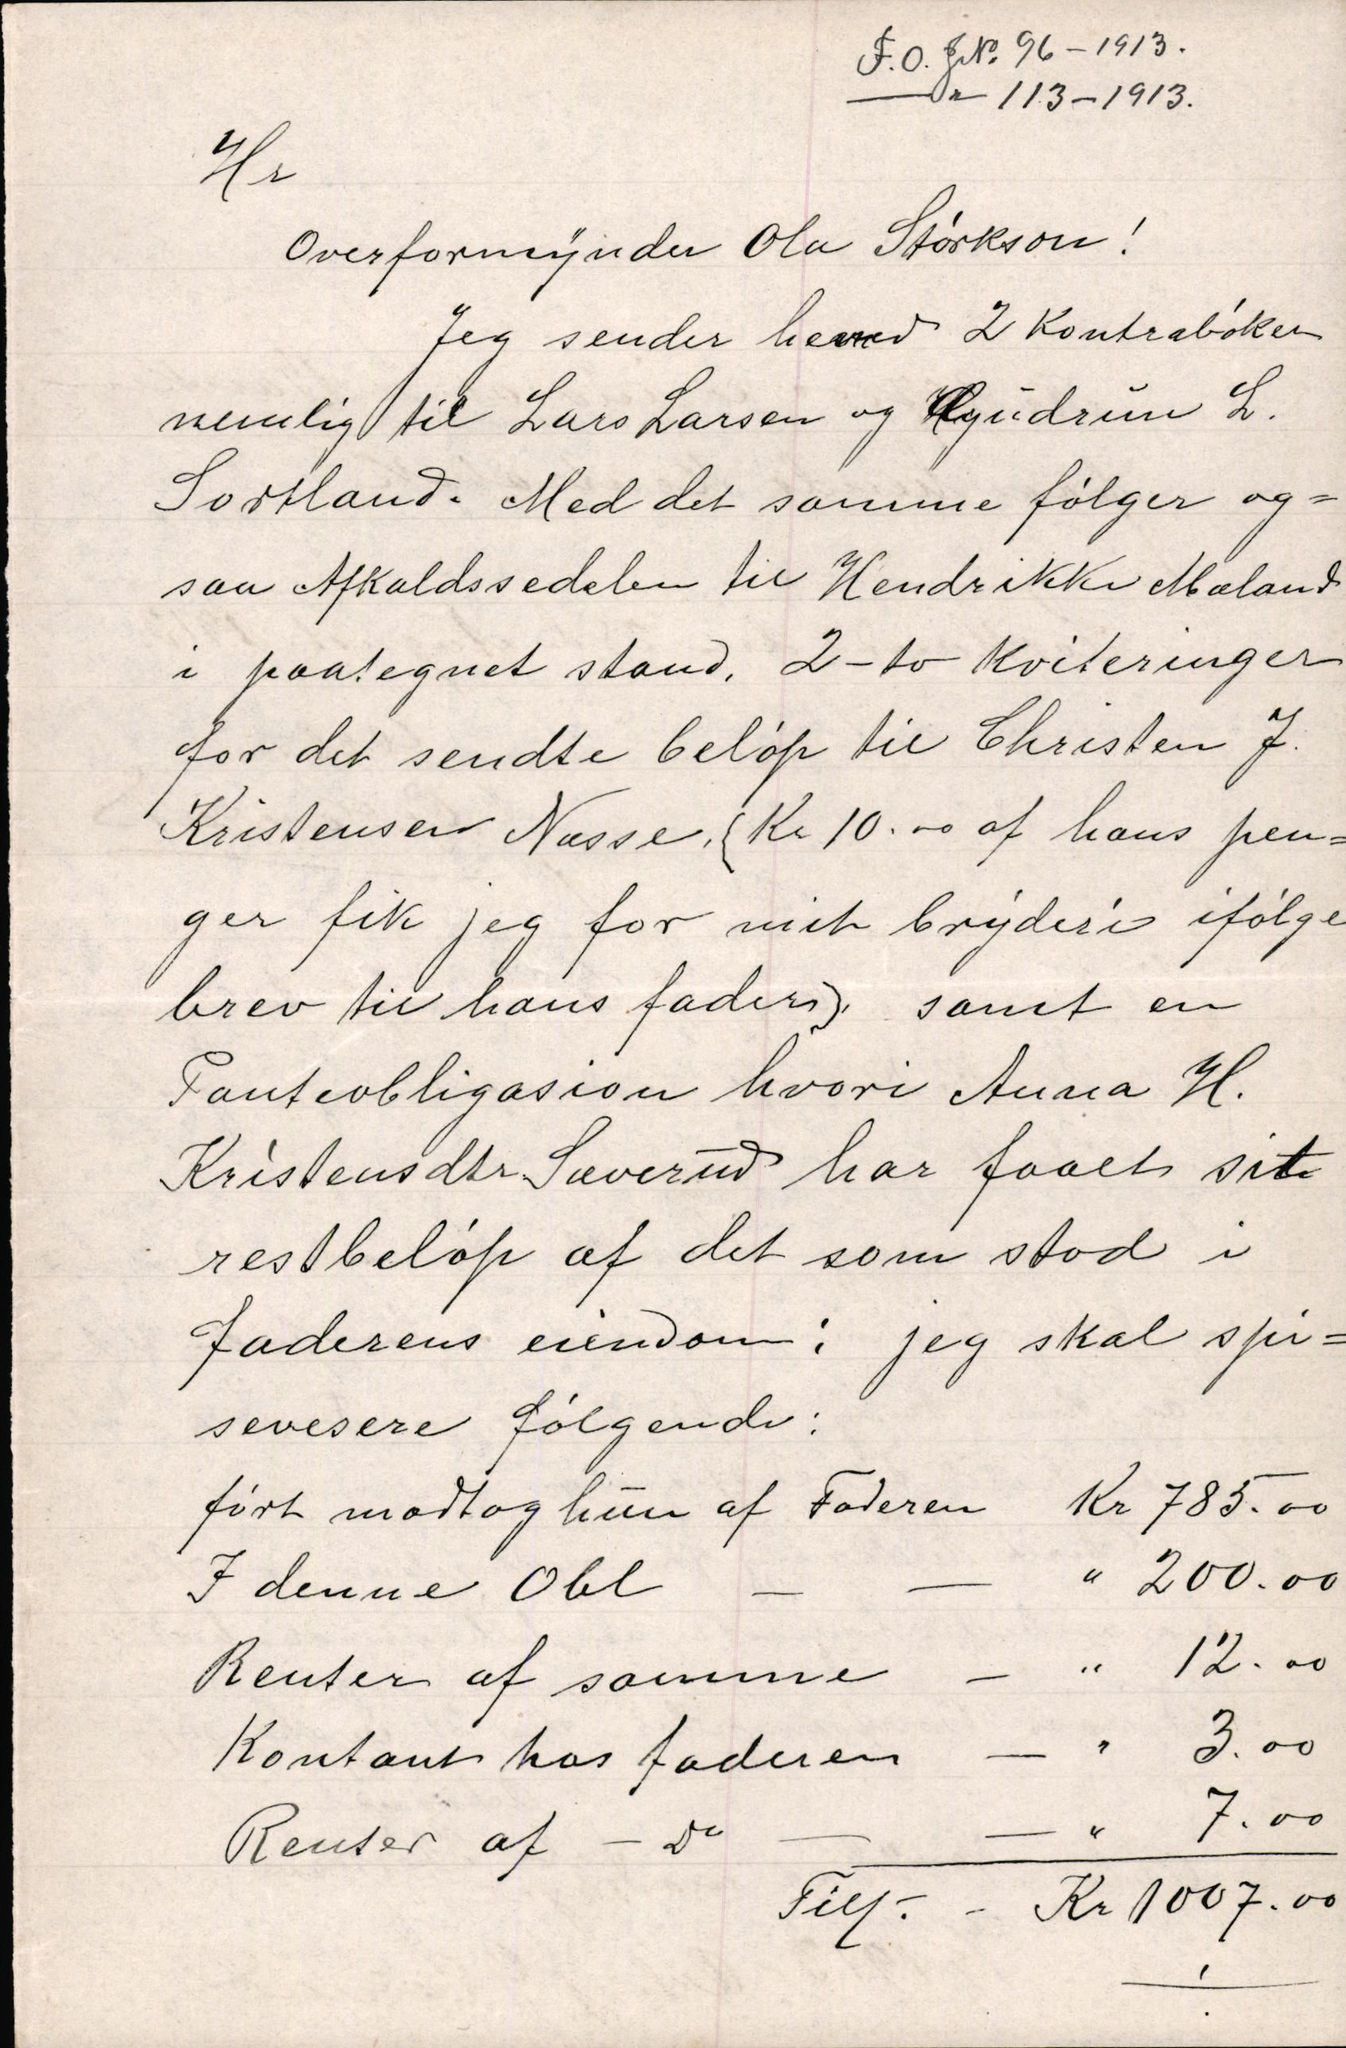 F.O. J.No. 96 – 1913.
— " — 113 – 1913.
Hr
Overformynder Ola Störkson!
Jeg sender herved 2 Kontraböker
nemlig til Lars Larsen og Gudrun L.
Sortland. Med det samme fölger og=
saa Afkaldssedelen til Hendrikke Mæland
i paategnet stand, 2-to Kviteringer
for det sendte belöp til Christen J.
Kristensen Næsse, (Kr 10.00 af hans pen=
ger fik jeg for mit bryderi ifölge
brev til hans fader), samt en
Panteobligasion hvori Anna H.
Kristensdtr Sæverud har faaet sit
restbelöp af det som stod i
faderens eiendom; jeg skal spi=
sevesere fölgende:
fört modtog hun af Faderen Kr 785.00
I denne Obl — — " 200.00
Renter af samme — " 12.00
Kontant hos faderen — " 3.00
Renter af – Do — — " 7.00
Tils. - Kr 1007.00